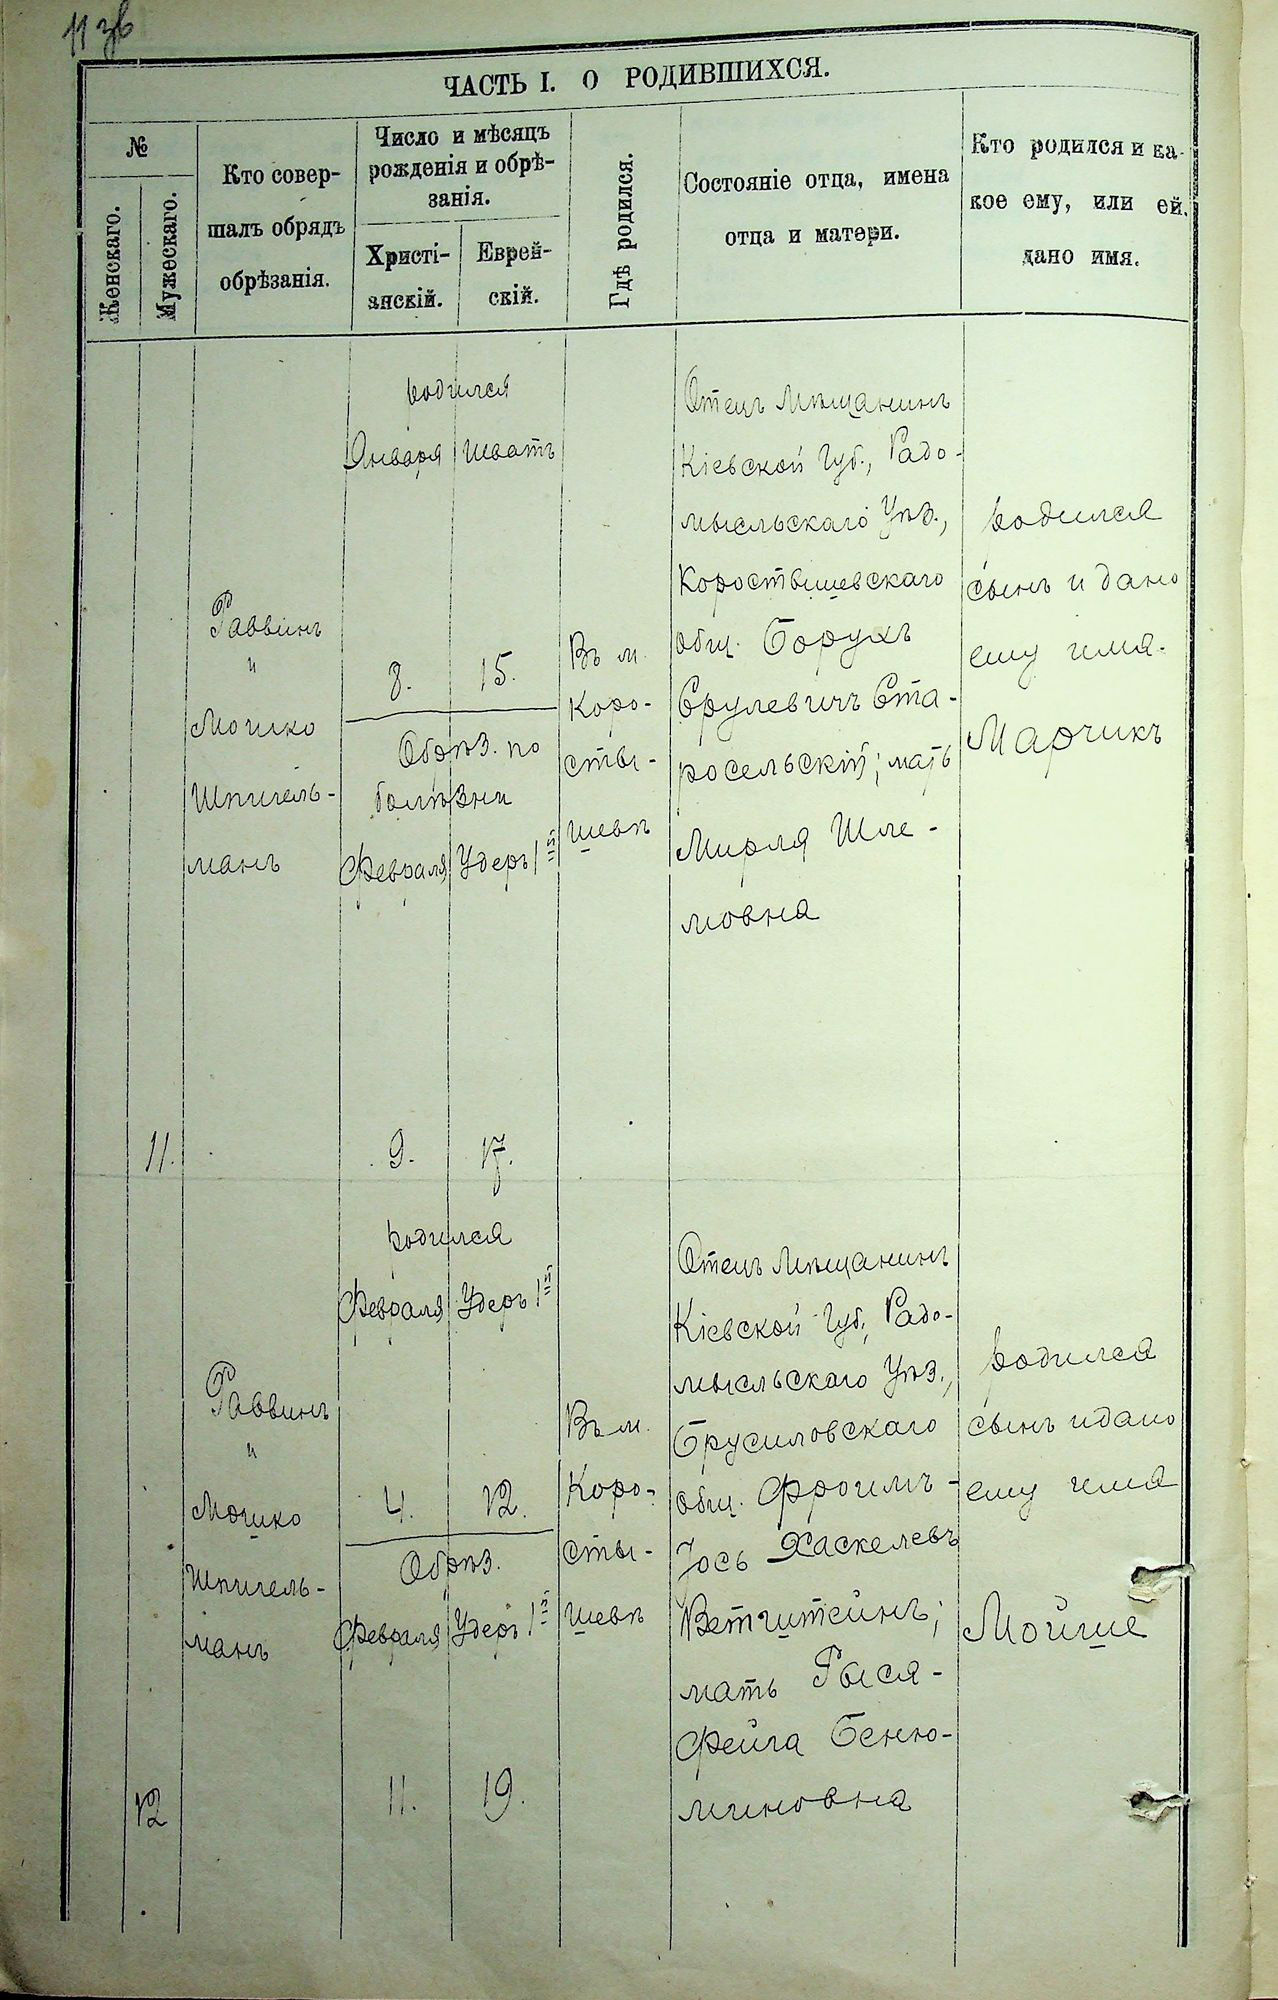 11 зв
ЧАСТЬ I. О РОДИВШИХСЯ.
№
Женскаго.
Мужескаго.
Кто совер-
шалъ обрядъ
обрѣзанія.
Число и мѣсяцъ
рожденія и обрѣ-
занія.
Христі-
анскій.
Еврей-
скій.
Гдѣ родился.
Состояніе отца, имена
отца и матери.
Кто родился и ка-
кое ему, или ей,
дано имя.
11.
Раввинъ
и
Мошко
Шпигель-
манъ
родился
Января Шватъ
8. 15.
Обрѣз. по
болѣзни
Февраля Удеръ 1й
9. 17.
Въ м.
Коро-
сты-
шевѣ
Отецъ Мѣщанинъ
Кіевской Губ., Радо-
мысльскаго Уѣз.,
Коростышевскаго
общ. Борухъ
Срулевичъ Ста-
росельскій; мать
Мирля Шле-
мовна
родился
сынъ и дано
ему имя.
Марчикъ
12
Раввинъ
и
Мошко
Шпигель-
манъ
родился
Февраля Удеръ 1й
4. 12.
Обрѣз.
Февраля Удеръ 1й
11. 19.
Въ м.
Коро-
сты-
шевѣ
Отецъ Мѣщанинъ
Кіевской Губ., Радо-
мысльскаго Уѣз.,
Брусиловскаго
общ. Фроимъ-
Іось Хаскелевъ
Ветштейнъ;
мать Рыся-
Фейга Беню-
миновна
родился
сынъ и дано
ему имя
Мойше